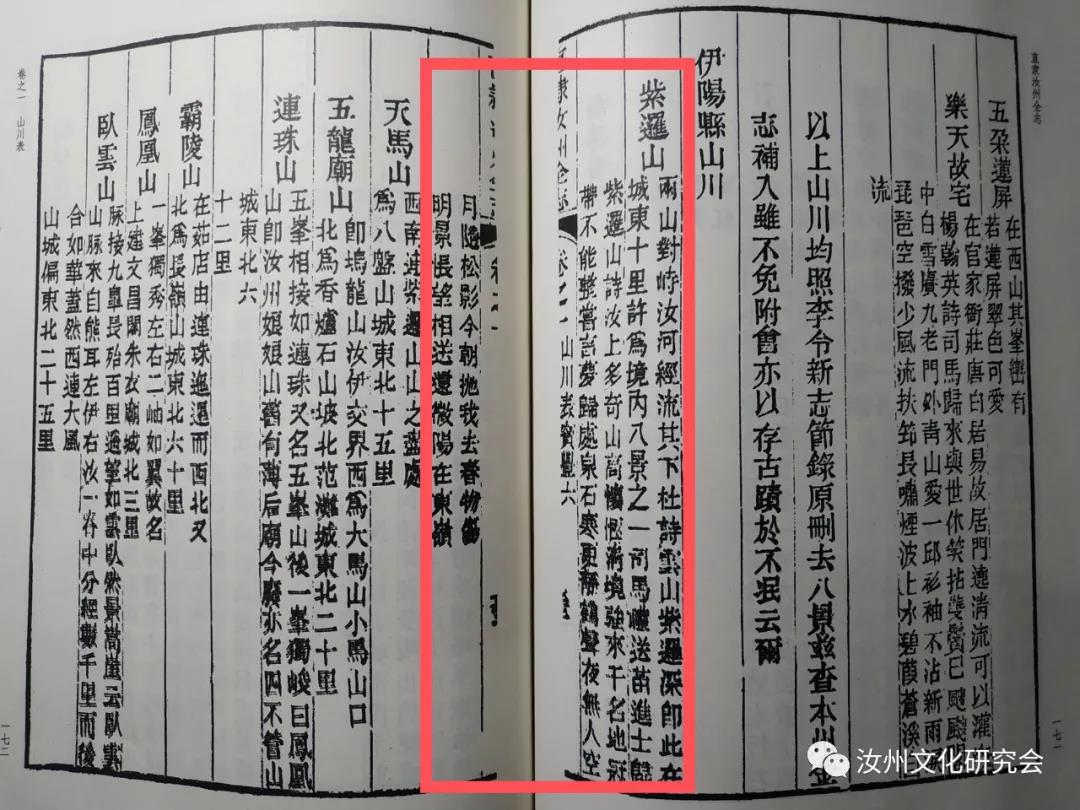 直隶汝州全志
五朶蓮屏 在西山其峯巒有
若蓮屏翠色可愛
樂天故宅 在官家衚莊唐白居易故居門遶淸流可以灌
楊翰英詩司馬歸來與世休笑拈雙鬢已颼颼
中白雪賡九老門外靑山愛一邱衫袖不沾新雨
琵琶空撥少風流扶筇長嘯煙波上水碧葭蒼溪
流
以上山川均照李令新志節錄原刪去八景玆查本州
志補入雖不免附會亦以存古蹟於不泯云爾
伊陽縣山川
紫邏山 兩山對峙汝河經流其下杜詩雲山紫邏深卽此在
城東十里許爲境內八景之一司馬 送苗進士歸
紫邏山詩汝上多奇山高懷愜淸境強來干名地冠
帶不能整嘗言夢歸處泉石寒更靜鶴聲夜無人空
直隸汝州全志 卷之一 山川表 六
一七一
月隨松影今朝拋我去春物
明景悵望相送還微陽在東嶺
天馬山 西南連紫邏山山之盡處
爲八盤山城東北十五里
五龍廟山 卽塢龍山汝伊交界西爲大馬山小馬山口
北爲香爐石山坡北范灘城東北二十里
連珠山 五峯相接如連珠又名五峯山後一峯獨峻曰鳳凰
山卽汝州娘娘山舊有薄后廟今廢亦名四不管山
城東北六
十二里
霸陵山 在茹店由連珠迤邐而西北又
北爲長嶺山城東北六十里
鳳凰山 一峯獨秀左右二岫如翼故名
上建文昌閣朱衣廟城北三里
臥雲山 脉接九臯長殆百里遙望如雲臥然景嵩崖云臥雲
山脉來自熊耳左伊右汝一脊中分經數千里而後
合如華蓋然西連大風
山城偏東北二十五里
卷之一 山川表
一七二
汝州文化研究会